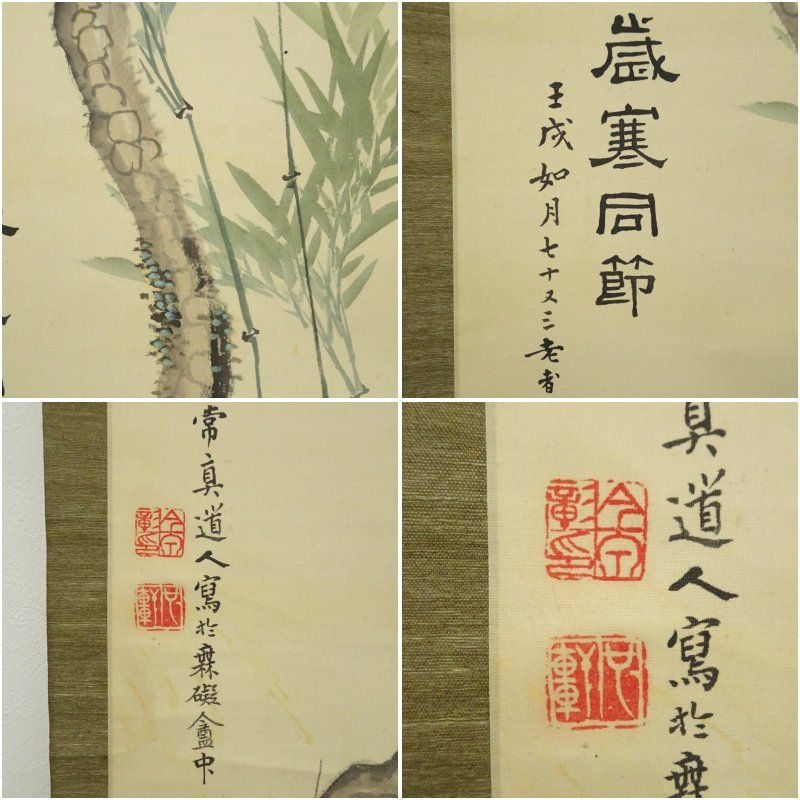 歳寒同節
壬戌如月七十又三老者
常真道人寫於霖礙盦中
真道人寫於霖